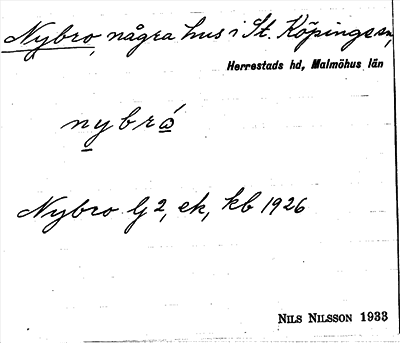 Nybro, några hus i St. Köpings sn,
Herrestads hd, Malmöhus län
nybrώ
Nybro lj 2, ek, kb 1926
NILS NILSSON 1933